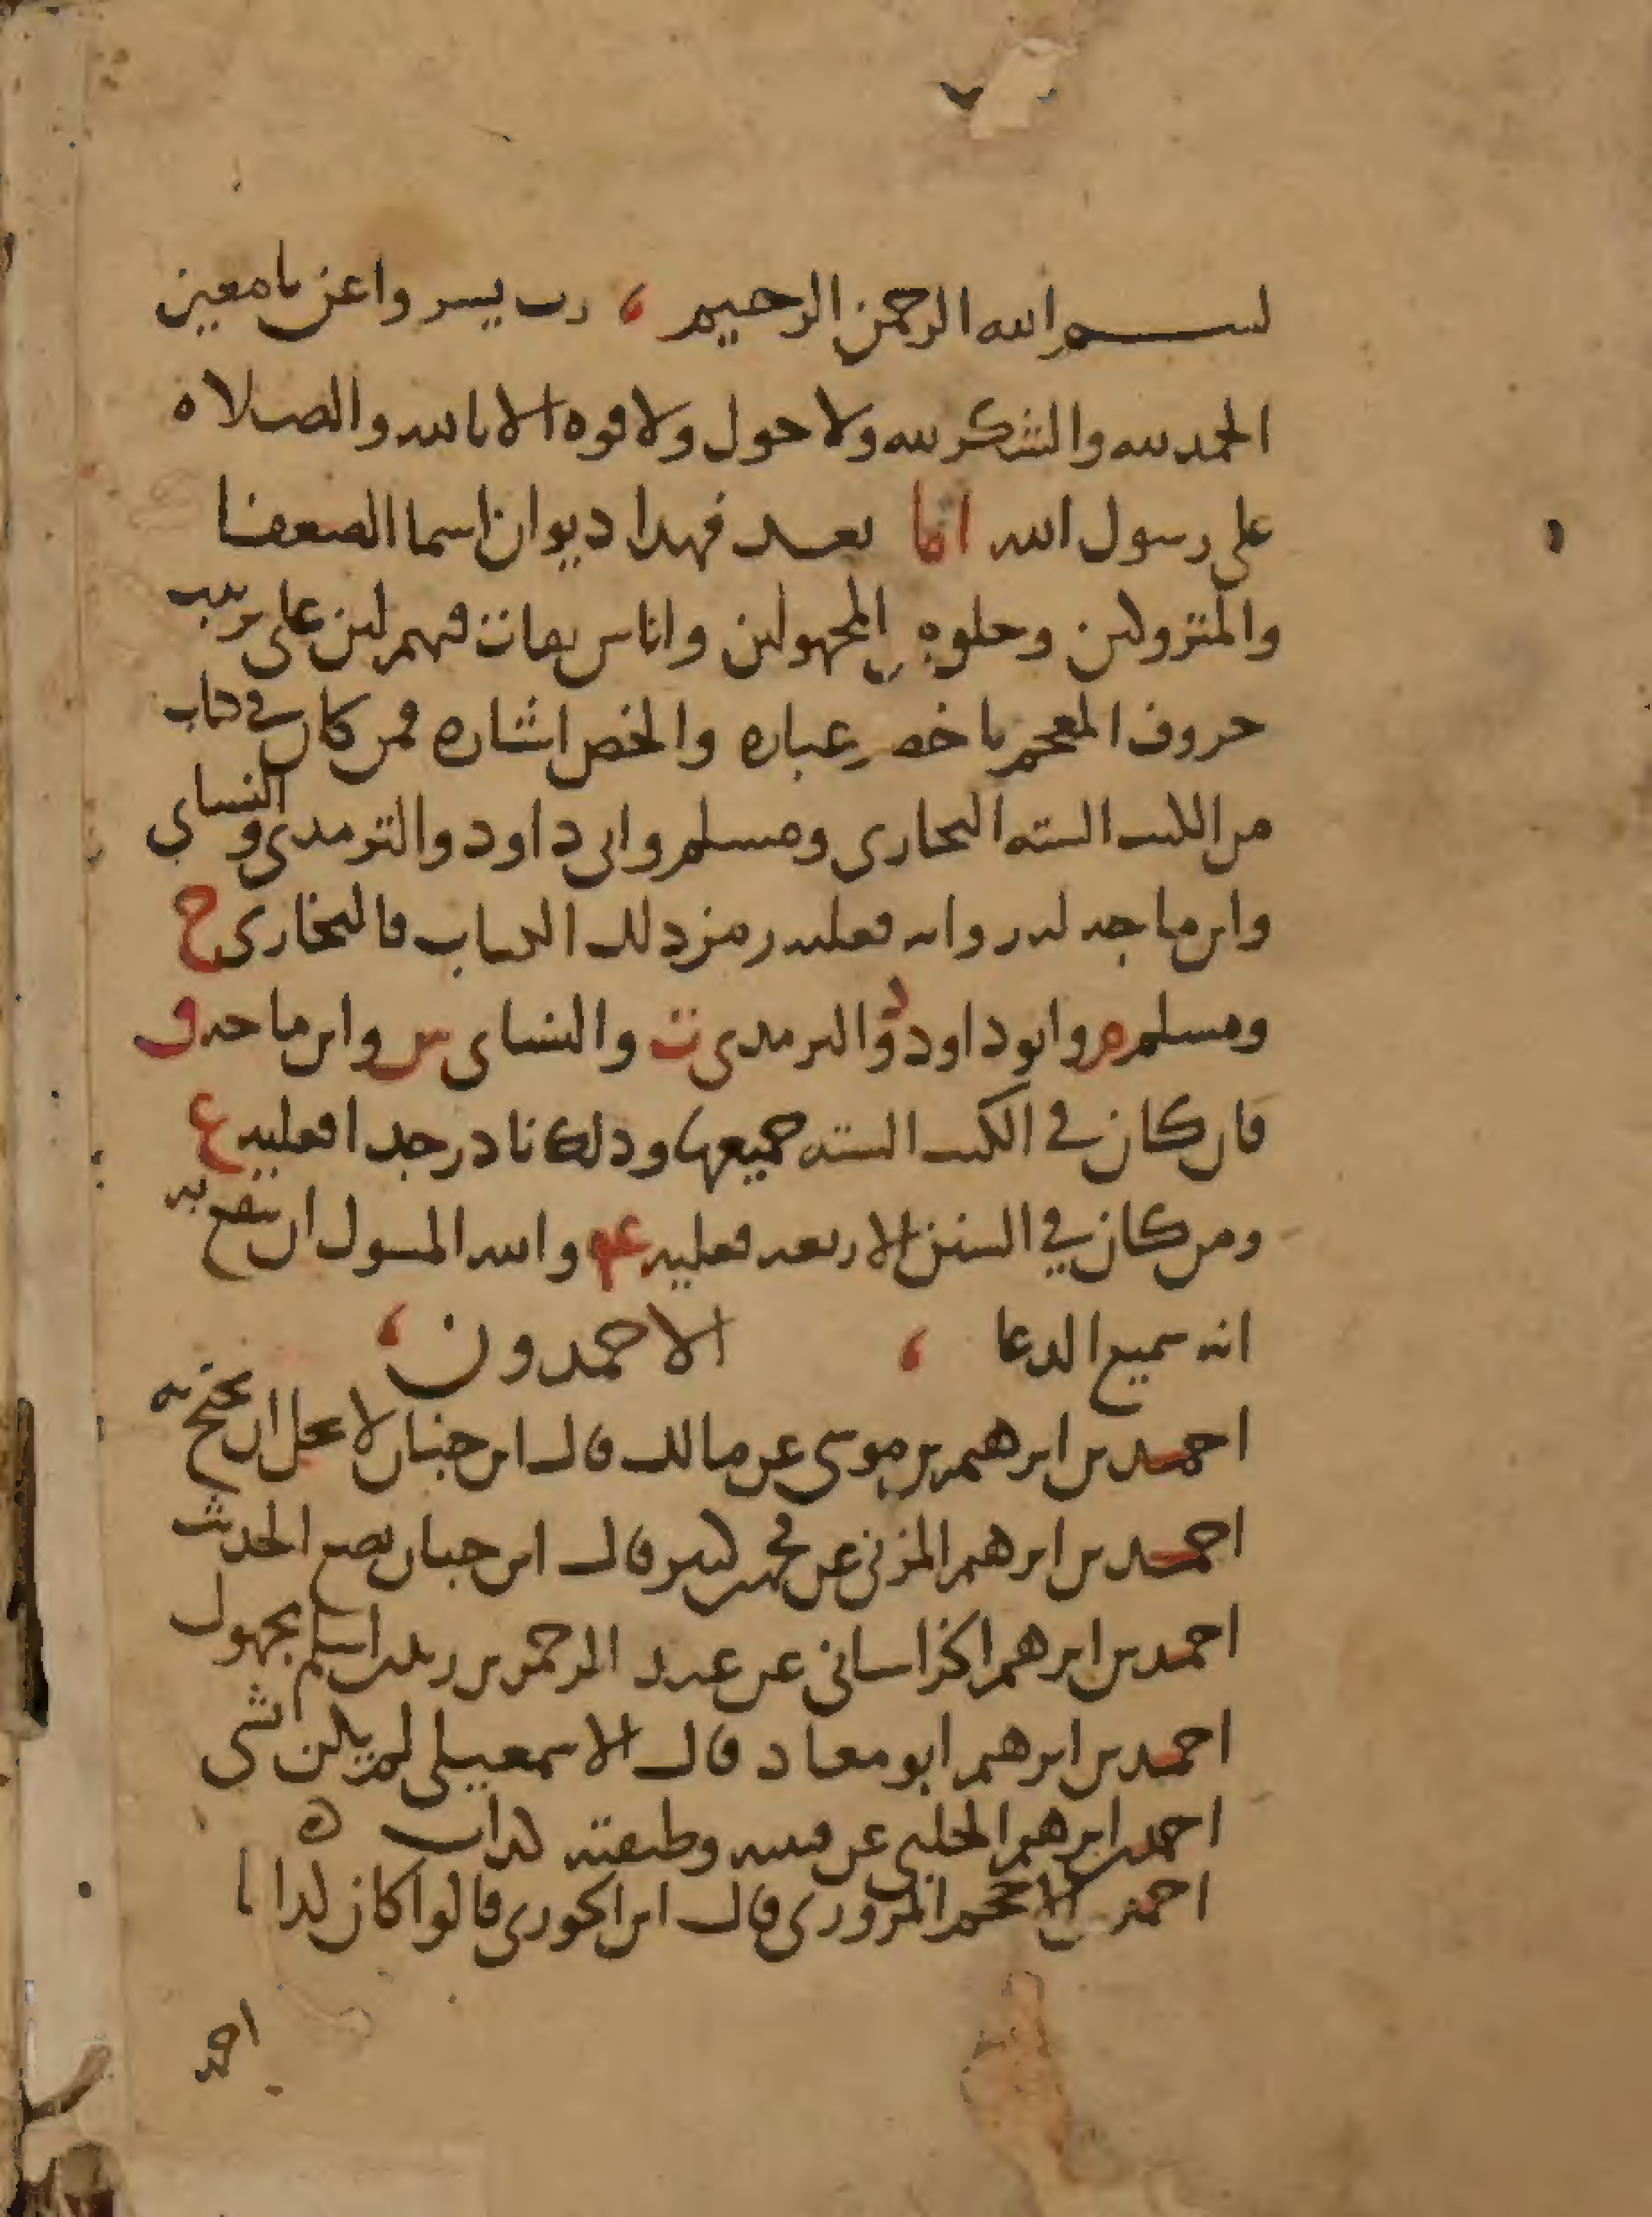 بسم الله الرحمن الرحيم ، رب يسر واعن يا معين
الحمد لله والشكر لله ولا حول ولا قوه الا بالله والصلاه
على رسول الله اما بعد فهدا ديوان اسما الضعفا
والمتروكين وخلق من المجهولين واناس ثقات فيهم لين على ترتيب
حروف المعجم باخصر عباره والخص اشاره فمن كان في كتاب
من الكتب السته البخارى ومسلم وابى داود والترمدى والنساى
وابن ماجه له روايه فعليه رمز دلك الكتاب فالبخارى خ
ومسلم م وابو داود د والترمدى ت والنساى س وابن ماجه ق
فان كان في الكتب السته جميعها ودلك نادر جدا فعليه ع
ومن كان في السنن الاربعه فعليه عه والله المسول ان ينفع به
انه سميع الدعا ، الاحمدون ،
احمد بن ابرهيم بن موسى عن مالك قال ابن حبان لا يحل ان يحتج به
احمد بن ابرهيم المزنى عن محمد بن كثير قال ابن حبان يضع الحديث
احمد بن ابرهيم الخراسانى عن عبد الرحمن بن زيد بن اسلم مجهول
احمد بن ابرهيم ابو معاد قال الاسمعيلى لم يكن بشى
احمد بن ابرهيم الحلبى عن قتيبه وطبقته كداب ه
احمد بن الاحجم المروزى قال ابن الجوزى قالوا كان كدابا
احمد